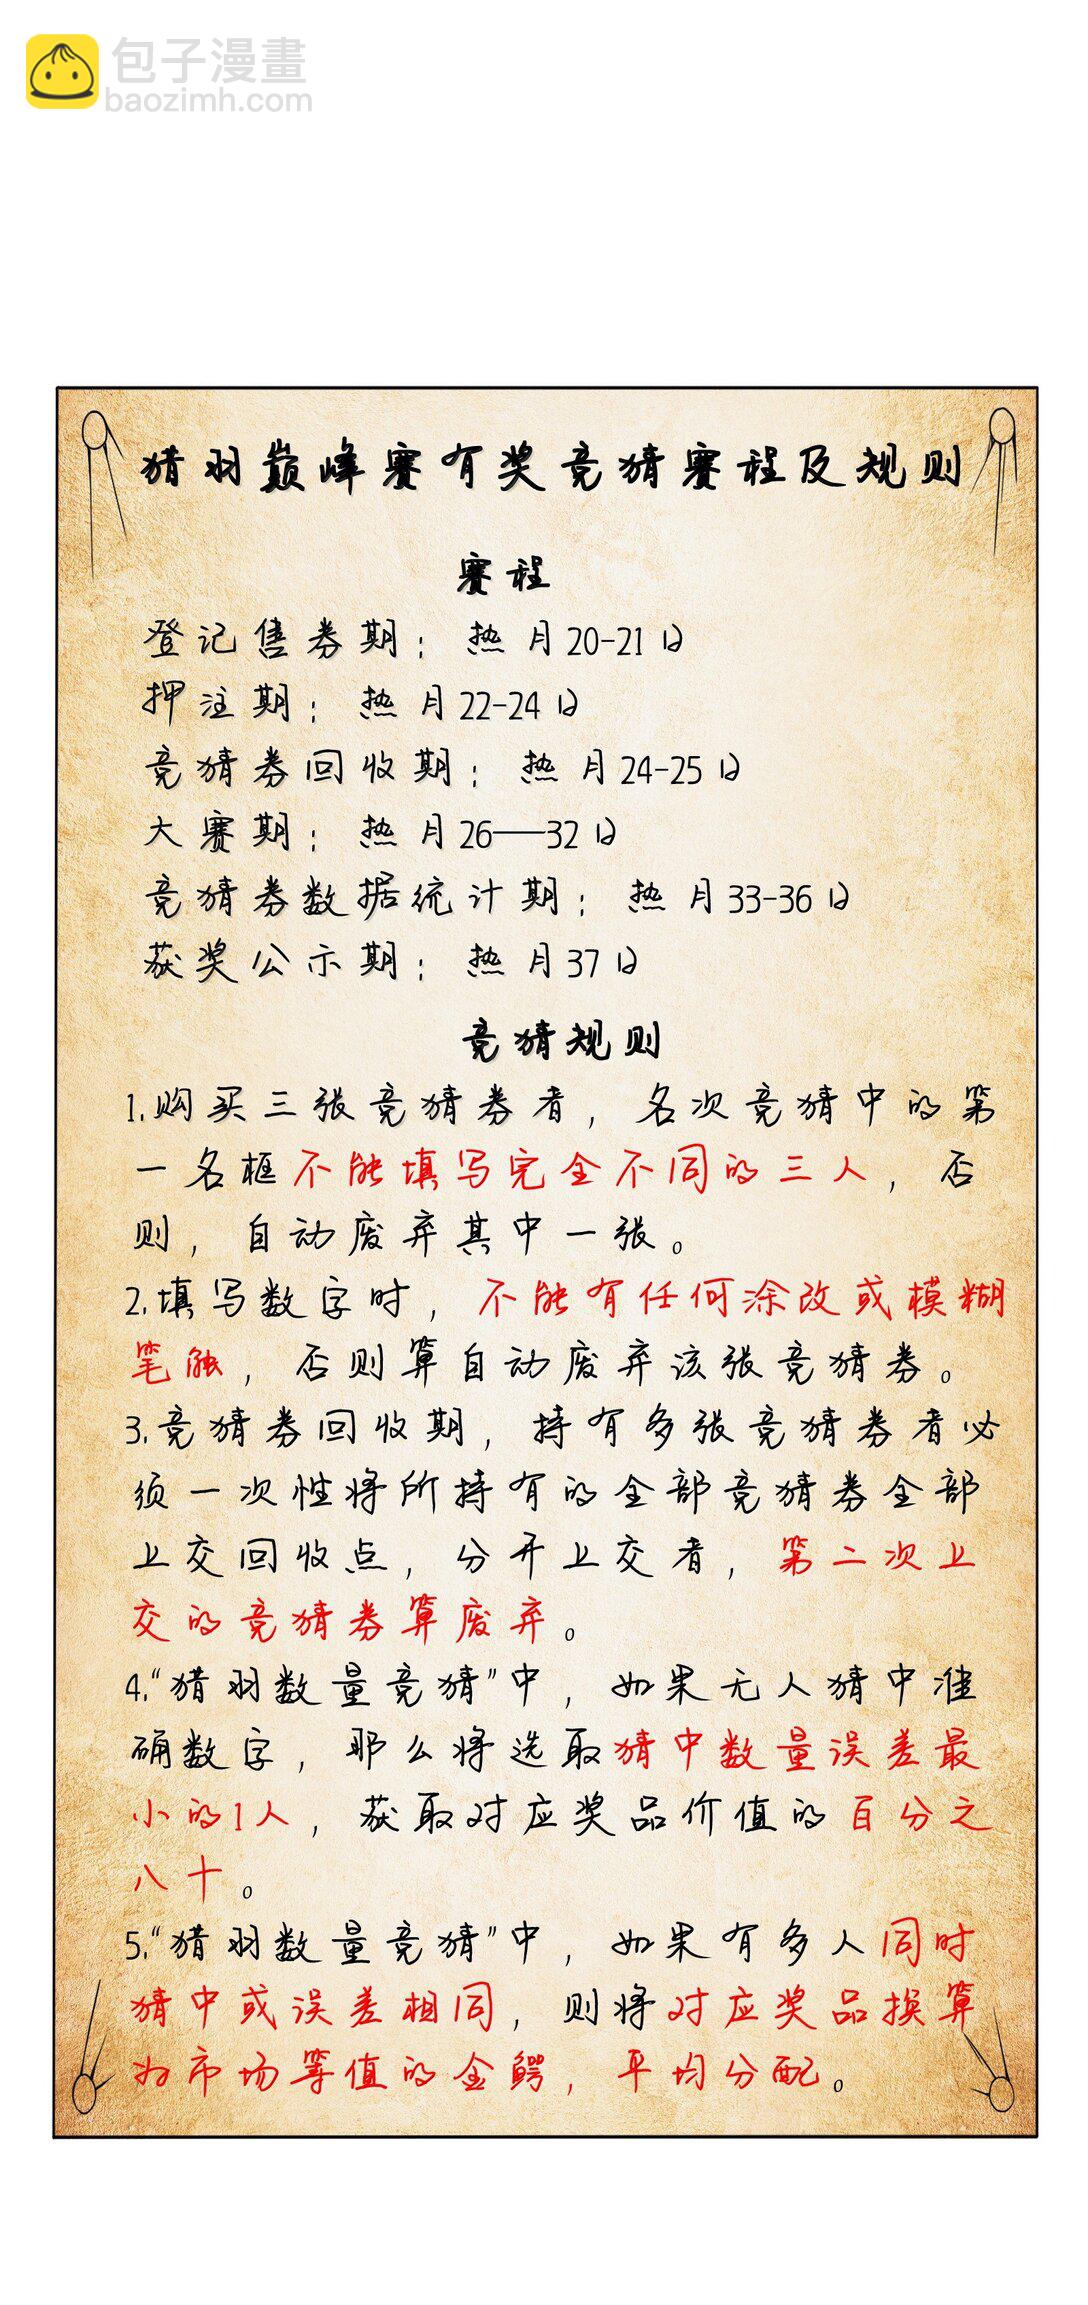 包子漫畫
baozimh.com
猎羽巅峰赛有奖竞猜赛程及规则
赛程
登记售券期：热月20-21日
押注期：热月22-24日
竞猜券回收期：热月24-25日
大赛期：热月26——32日
竞猜券数据统计期：热月33-36日
获奖公示期：热月37日
竞猜规则
1.购买三张竞猜券者，名次竞猜中的第
一名框不能填写完全不同的三人，否
则，自动废弃其中一张。
2.填写数字时，不能有任何涂改或模糊
笔触，否则算自动废弃该张竞猜券。
3.竞猜券回收期，持有多张竞猜券者必
须一次性将所持有的全部竞猜券全部
上交回收点，分开上交者，第二次上
交的竞猜券算废弃。
4.“猎羽数量竞猜”中，如果无人猜中准
确数字，那么将选取猜中数量误差最
小的1人，获取对应奖品价值的百分之
八十。
5.“猎羽数量竞猜”中，如果有多人同时
猜中或误差相同，则将对应奖品换算
为市场等值的金鳄，平均分配。